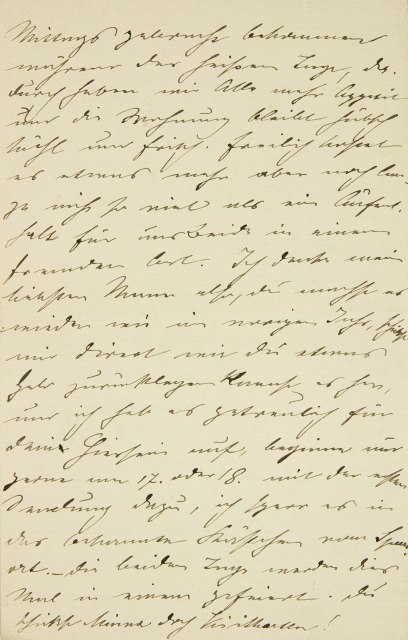 Mittags gebracht bekommen
während der heißen Tage, da-
durch haben wir Alle mehr Appetit
und die Wohnung bleibt hübsch
kühl und frisch. Freilich kostet
es etwas mehr aber noch lan-
ge nicht so viel als ein Aufent-
halt für uns Beide in einem
fremden Ort. Ich denke mein
liebster Mann also, du machst es
wieder wie im vorigen Jahr, schickst
mir direct wie du etwas
Geld zurücklegen kannst es her,
und ich heb es getreulich für
dein Hiersein auf, beginne nur
gerne am 17. oder 18. mit der ersten
Sendung dazu, ich sperr es in
das bekannte Kästchen vom
ort. – die beiden Tage werden dies
Mal in einem gefeiert. du
schickst Minna doch Visitkarten!